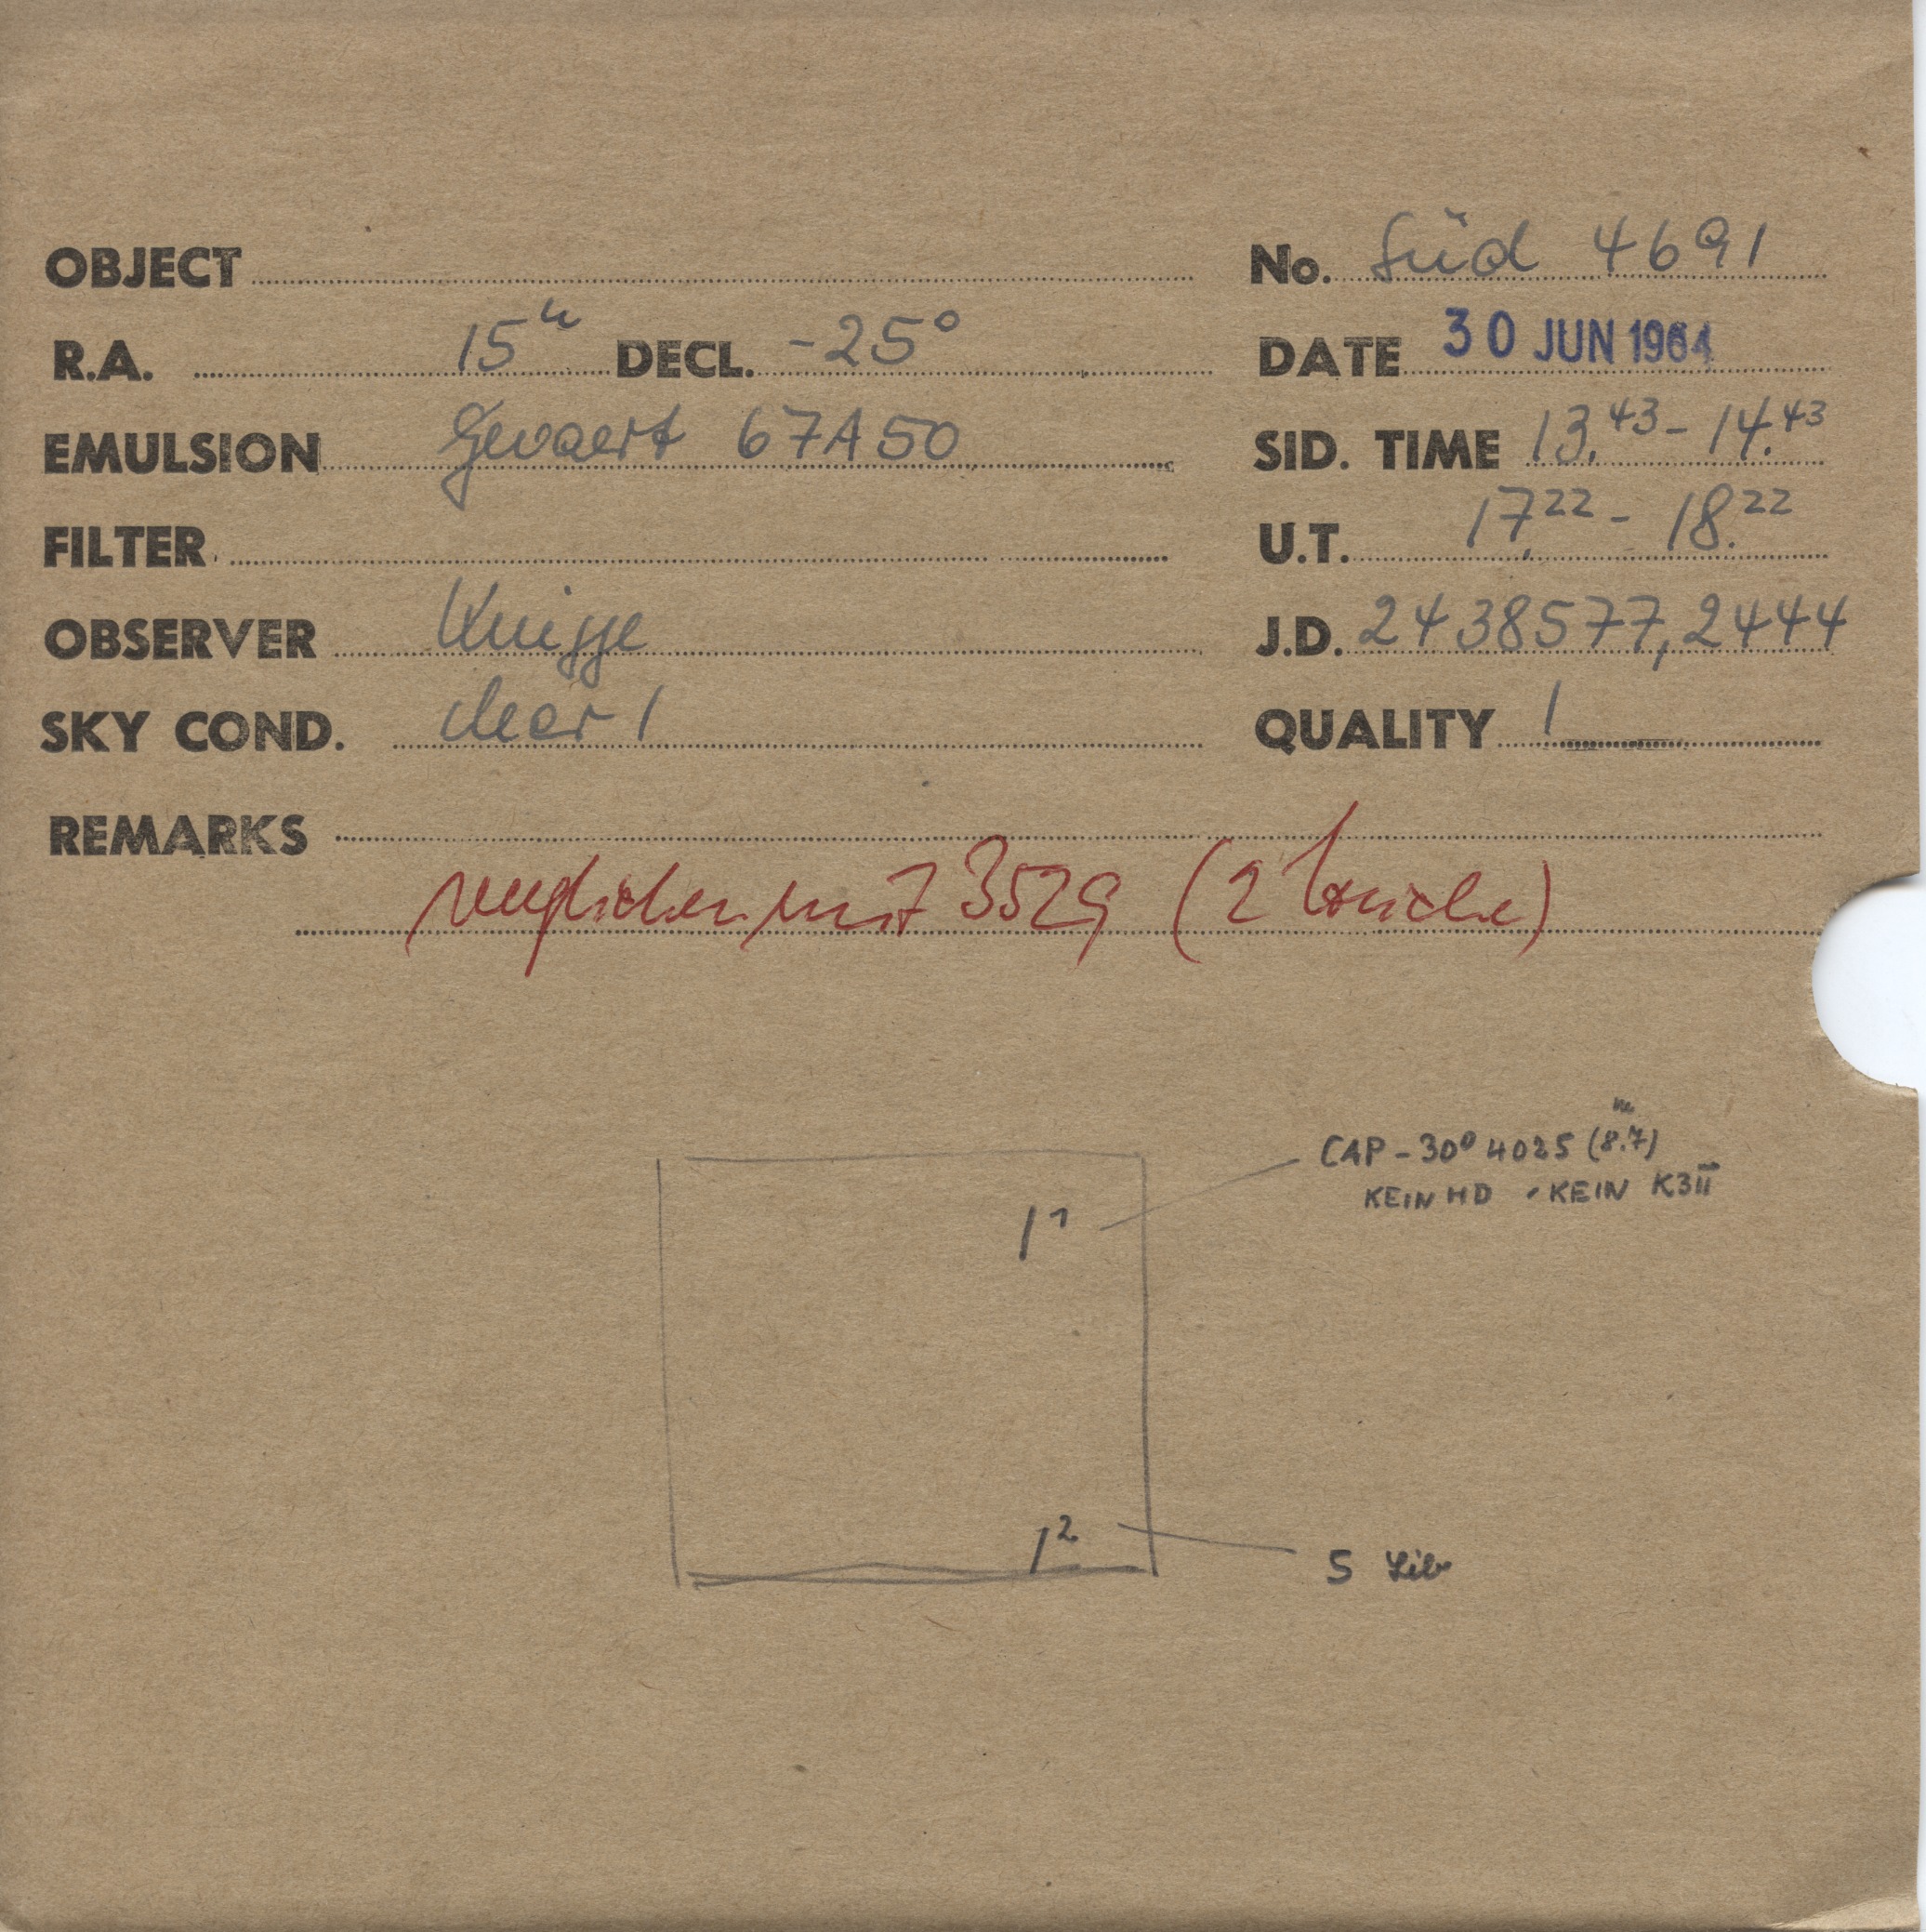 OBJECT No. Süd 4691
R.A. 15h DECL. -25° DATE 30 JUN 1964
EMULSION Gevaert 67A50 SID. TIME 13.43 - 14.43
FILTER U.T. 17.22 - 18.22
OBSERVER Knigge J.D. 2438577,2444
SKY COND. clear 1 QUALITY 1
REMARKS
verglichen mit 3529 (2 Striche)
CAP -30° 4025 (8.7m)
KEIN HD - KEIN K3II
1
2
S Lib